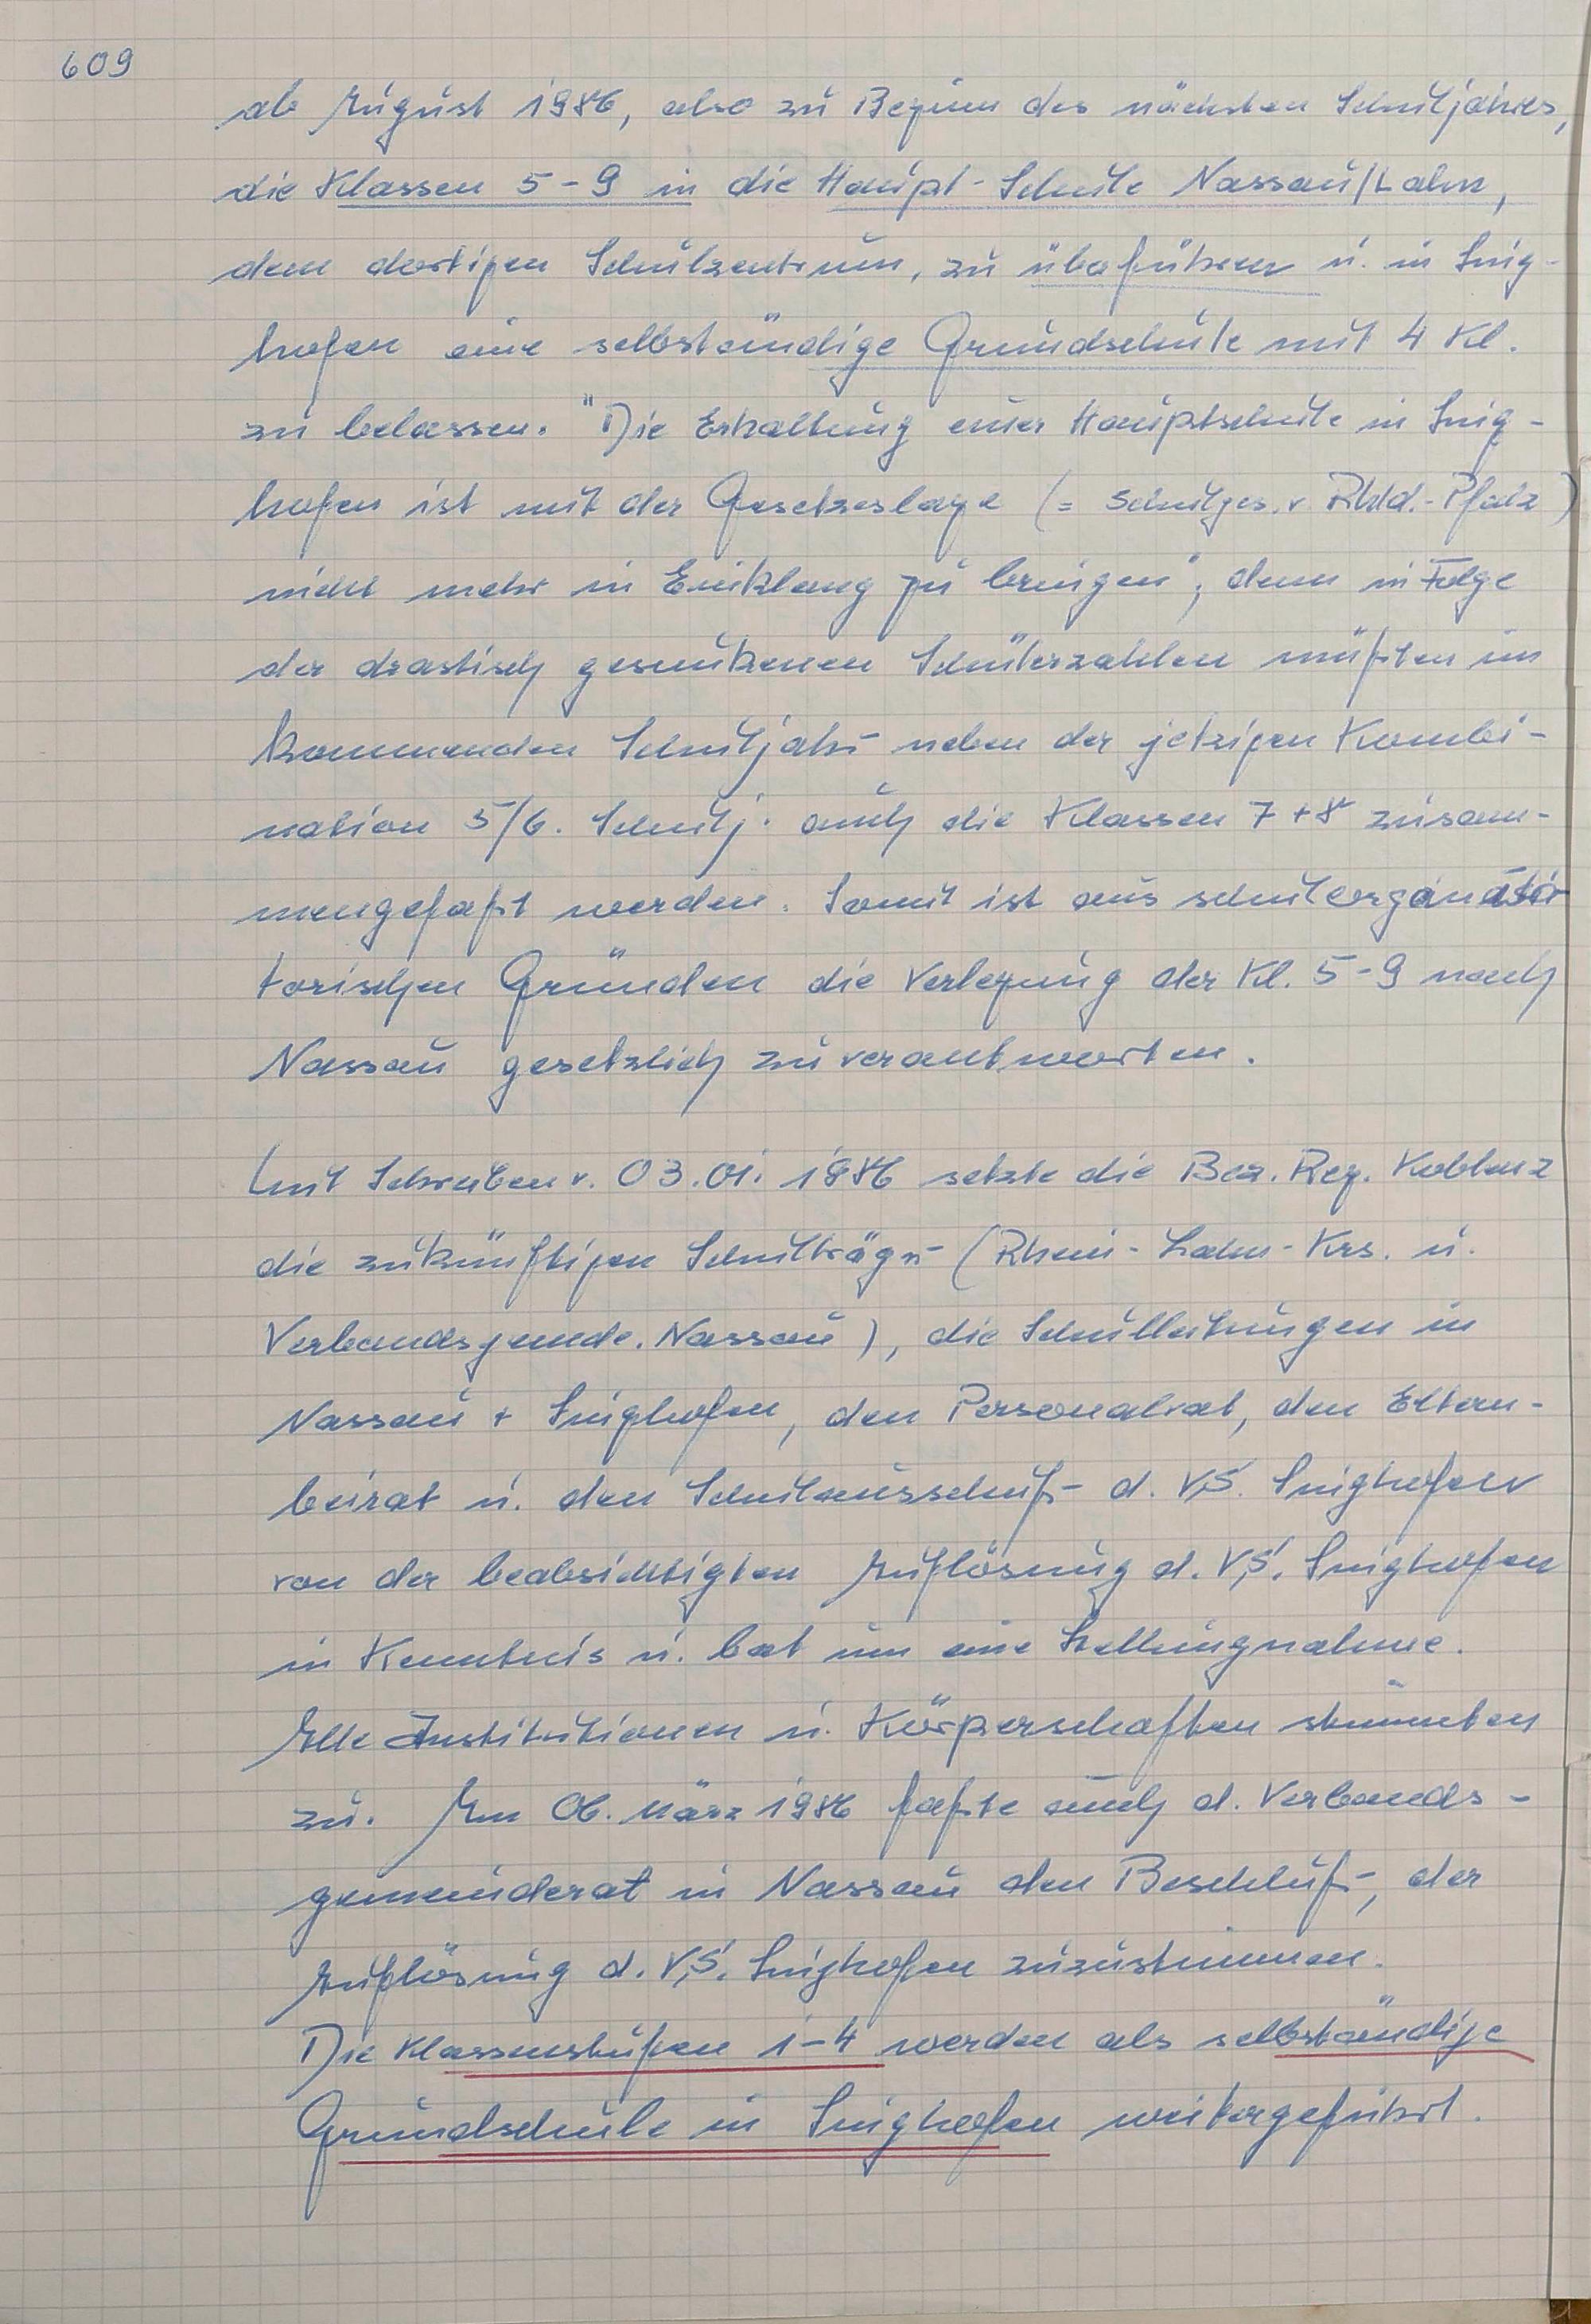 609
ab August 1986, also zu Beginn des nächsten Schuljahres,
die Klassen 5-9 in die Haupt-Schule Nassau/Lahn,
dem dortigen Schulzentrum, zu überführen u. in Sing-
hofen eine selbständige Grundschule mit 4 Kl.
zu belassen. "Die Erhaltung einer Hauptschule in Sing-
hofen ist mit der Gesetzeslage (= Schulges. v Rhld.-Pfalz)
nicht mehr in Einklang zu bringen", denn in Folge
der drastisch gesunkenen Schülerzahlen müßten im
kommenden Schuljahr neben der jetzigen Kombi-
nation 5/6. Schulj. auch die Klassen 7+8 zusam-
mengefaßt werden. Somit ist aus schulorganisa-
torischen Gründen die Verlegung der Kl. 5-9 nach
Nassau gesetzlich zu verantworten.
Mit Schreiben v. 03.01.1986 setzte die Bez. Reg. Koblenz
die zukünftigen Schulträger (Rhein-Lahn-Krs. u.
Verbandsgemde. Nassau), die Schulleitungen in
Nassau + Singhofen, den Personalrat, den Eltern-
beirat u. den Schulausschuß d. VS. Singhofen
von der beabsichtigten Auflösung d. VS. Singhofen
in Kenntnis u. bat um eine Stellungnahme.
Alle Institutionen u. Körperschaften stimmten
zu. Am 06. März 1986 faßte auch d. Verbands-
gemeinderat in Nassau den Beschluß, der
Auflösung d. VS. Singhofen zuzustimmen.
Die Klassenstufen 1-4 werden als selbständige
Grundschule in Singhofen weitergeführt.